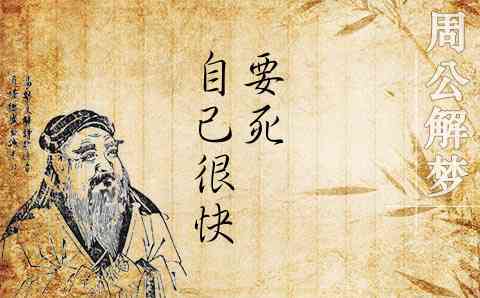 周公解梦
自己很快
要死